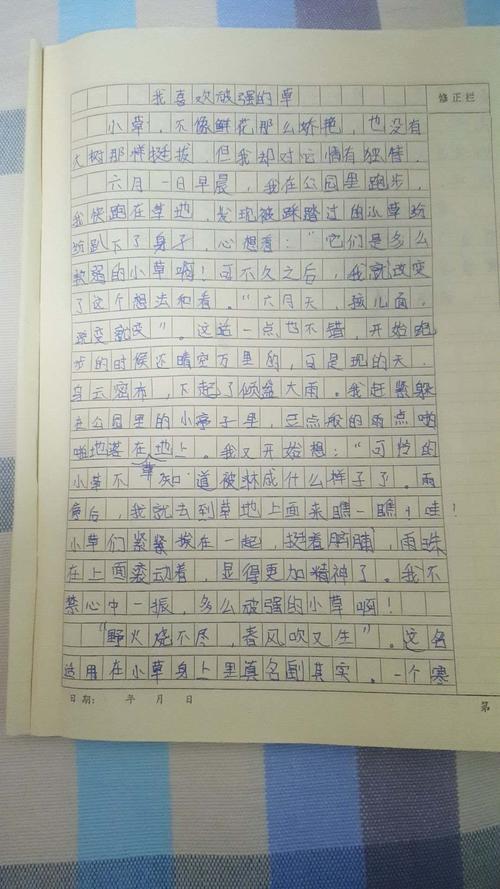 我喜欢破强的草
修正栏
小草，不像鲜花那么娇艳，也没有
大树那样挺拔，但我却对它情有独钟。
六月一日早晨，我在公园里跑步，
我快跑在草地，发现被踩踏过的小草纷
纷趴下了身子，心想着：“它们是多么
软弱的小草啊！可不久之后，我就改变
了这个想法和看。“六月天，孩儿面，
说变就变”。这话一点也不错，开始跑
步的时候还晴空万里的，可是现的天，
乌云密布，下起了倾盆大雨。我赶紧躲
在公园里的小亭子里，豆点般的雨点啪
啪地落在地上。我又开始想：“可怜的
小草不知道被淋成什么样子了。雨
停后，我就去到草地上面来瞧一瞧，哇！
小草们紧紧挨在一起，挺着胸脯，雨珠
在上面滚动着，显得更加精神了。我不
禁心中一振，多么破强的小草啊！
“野火烧不尽，春风吹又生”。这名
适用在小草身上里真名副其实。一个寒
日期： 年 月 日
第